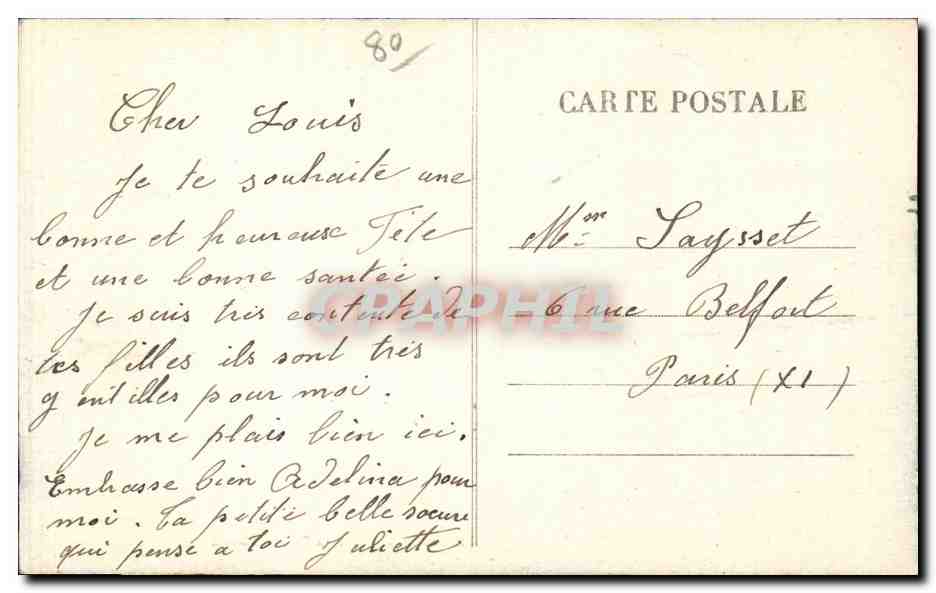 80/
Cher Louis
Je te souhaite une
bonne et heureuse Fête
et une bonne santéi.
Je suis très contente de
tes filles ils sont très
gentilles pour moi.
Je me plais bien ici.
Embrasse bien Adelina pour
moi. Ta petite belle soeure
qui pense a toi Juliette
CARTE POSTALE
Saysset
6 rue Belfort
Paris (XI)
CPAPHIL